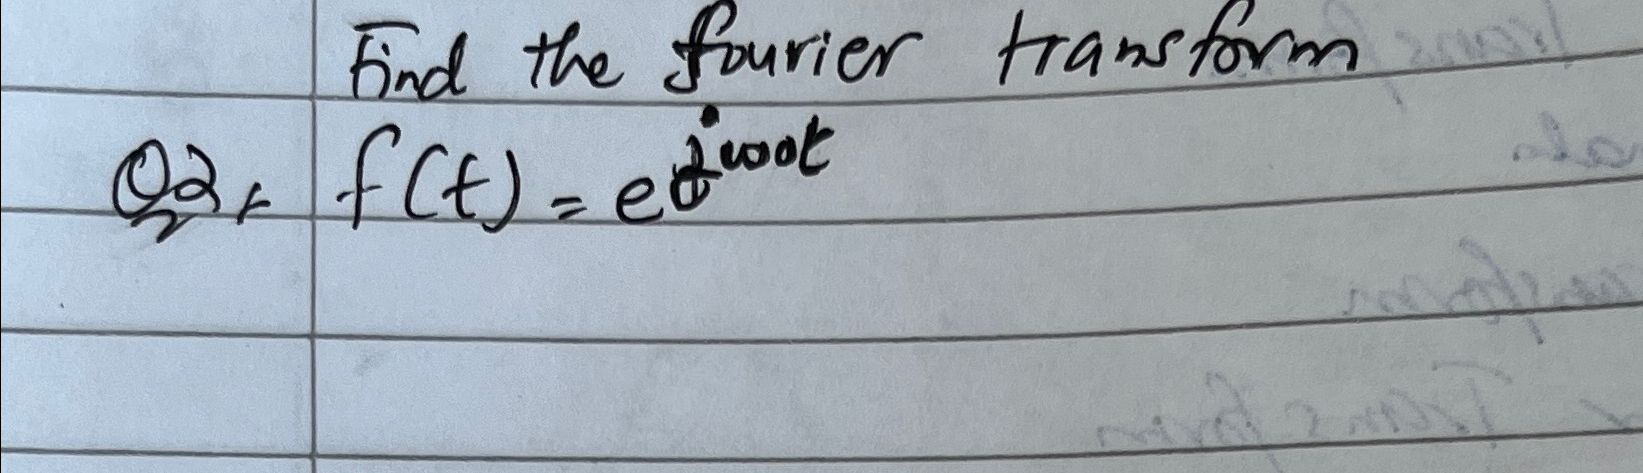 Find the fourier transform
Q2, f(t) = e^jwot